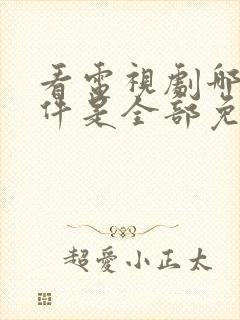 看電視劇哪
件是全部免
超愛小正太